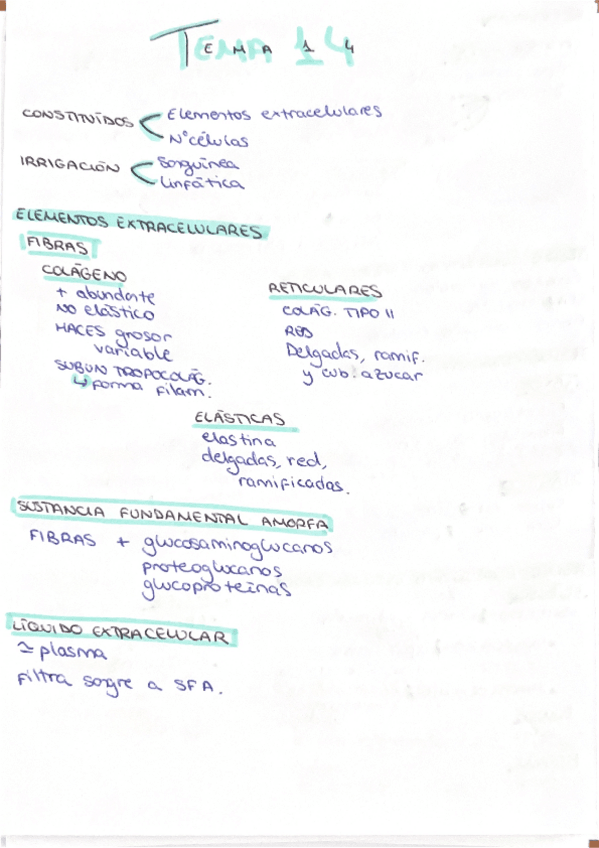 TEMA 14
CONSTITUÍDOS < Elementos extracelulares
Nº células
IRRIGACIÓN < Sanguínea
Linfática
ELEMENTOS EXTRACELULARES
FIBRAS
COLÁGENO
+ abundante
NO elástico
HACES grosor
variable
SUBUN TROPOCOLÁG.
↳ forma filam.
RETICULARES
COLÁG. TIPO II
RED
Delgadas, ramif.
y cub. azucar
ELÁSTICAS
elastina
delgadas, red,
ramificadas.
SUSTANCIA FUNDAMENTAL AMORFA
FIBRAS + glucosaminoglucanos
proteoglucanos
glucoproteínas
LÍQUIDO EXTRACELULAR
≃ plasma
Filtra sogre a SFA.